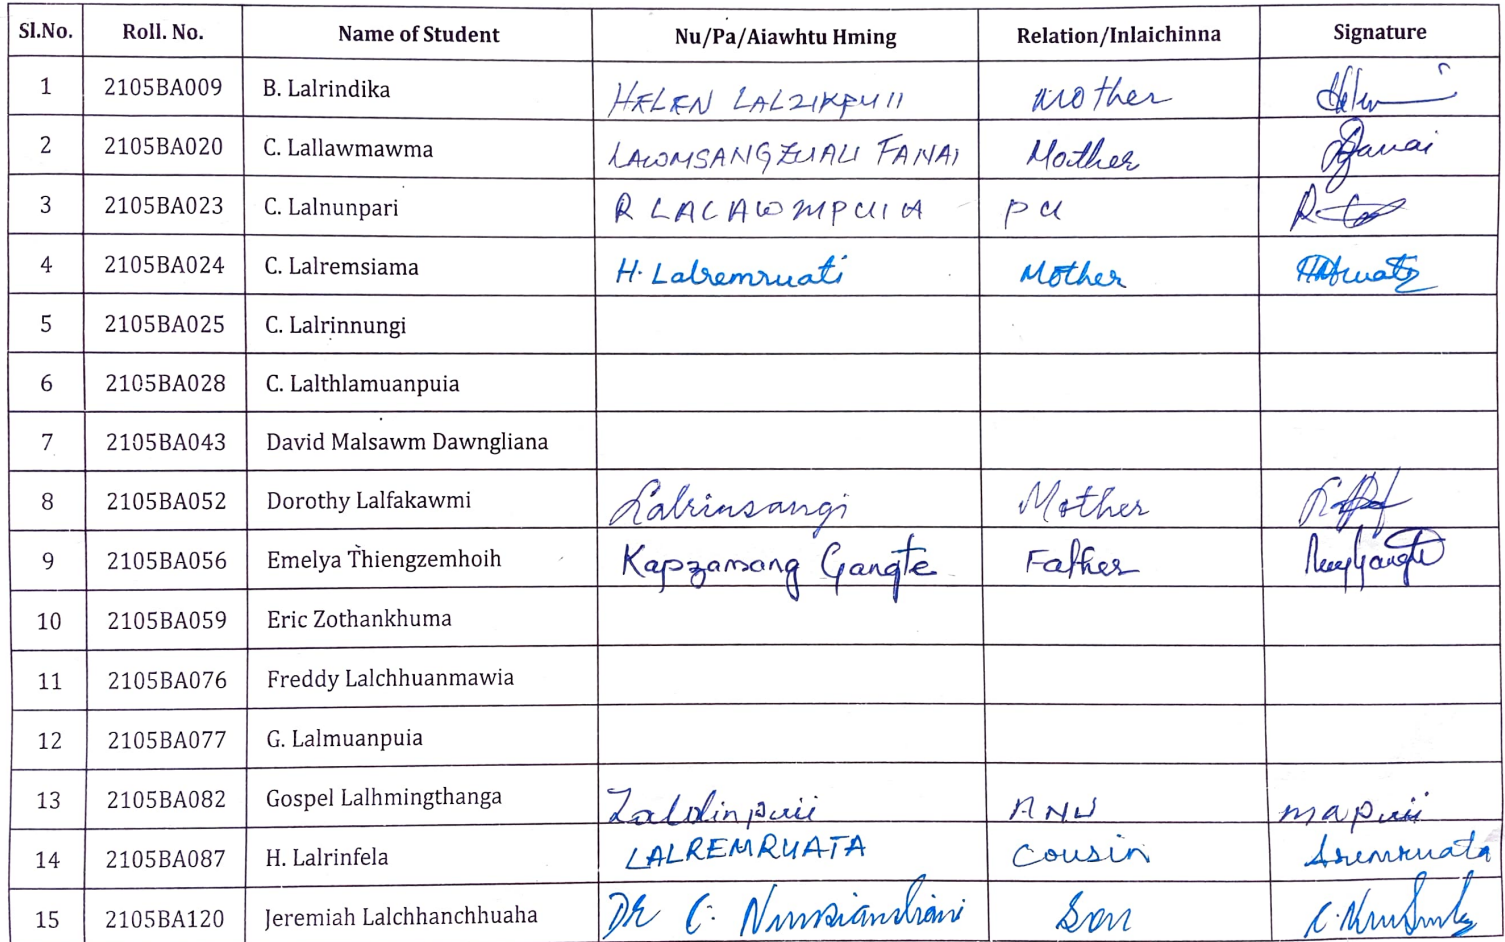 Sl.No. Roll. No. Name of Student Nu/Pa/Aiawhtu Hming Relation/Inlaichinna Signature
1 2105BA009 B. Lalrindika HELEN LALZIKPUII Mother Helen
2 2105BA020 C. Lallawmawma LAWMSANGZUALI FANAI Mother Fanai
3 2105BA023 C. Lalnunpari R LALAWMPUIA PU
4 2105BA024 C. Lalremsiama H. Lalremruati Mother
5 2105BA025 C. Lalrinnungi
6 2105BA028 C. Lalthlamuanpuia
7 2105BA043 David Malsawm Dawngliana
8 2105BA052 Dorothy Lalfakawmi Lalrinsangi Mother
9 2105BA056 Emelya Thiengzemhoih Kapzamang Gangte Father
10 2105BA059 Eric Zothankhuma
11 2105BA076 Freddy Lalchhuanmawia
12 2105BA077 G. Lalmuanpuia
13 2105BA082 Gospel Lalhmingthanga Laldinpuii ANU mapuii
14 2105BA087 H. Lalrinfela LALREMRUATA Cousin Aremruata
15 2105BA120 Jeremiah Lalchhanchhuaha Dr C. Son